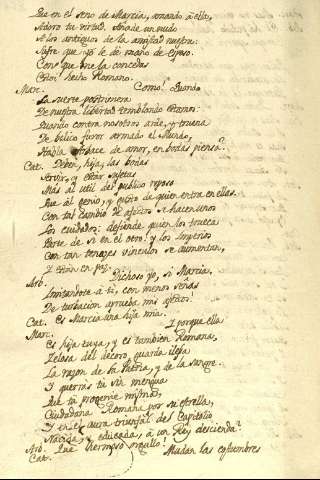 Que en el seno de Marcia, amando á ella,
Adoro tu virtud. Añade un nudo
A los antiguos de la amistad nuestra:
Sufre que yo le dé mano de Esposo.
Con que me la concedas
Seré hecho Romano.
Mar. Como! Quando
La suerte postrimera
De nuestra libertad temblando
Quando contra nosotros arde, y truena
De belico furor armado el Mundo,
Habla Arbace de amor, en bodas piensa?
Cat. Deben, hija, las bodas
Servir, y estar sujetas
Mas al util del publico reposo
Que al genio, y gusto de quien entra en ellas.
Con tal cambio de afectos se hacen unos
Los cuidados: defiende quien los trueca
Parte de si en el otro: y los Imperios
Con tan tenazes vinculos se aumentan,
Y están en paz.
Arb. Dichoso yo, si Marcia,
Imitandote á tí, con menos señas
De turbacion aprueba mis afectos!
Cat. Es Marcia una hija mia.
Mar. Y porque ella
Es hija tuya, y es tambien Romana,
Zelosa del decoro, guarda ilesa
La razon de la Patria, y de la sangre.
Y querrás tú sin mengua
Que tu progenie misma,
Ciudadana Romana por su estrella,
Y en el aura triunfal del Capitolio
Nacida, y educada, á un Rey descienda?
Arb. Que hermoso orgullo!
Cat. Mudan las costumbres